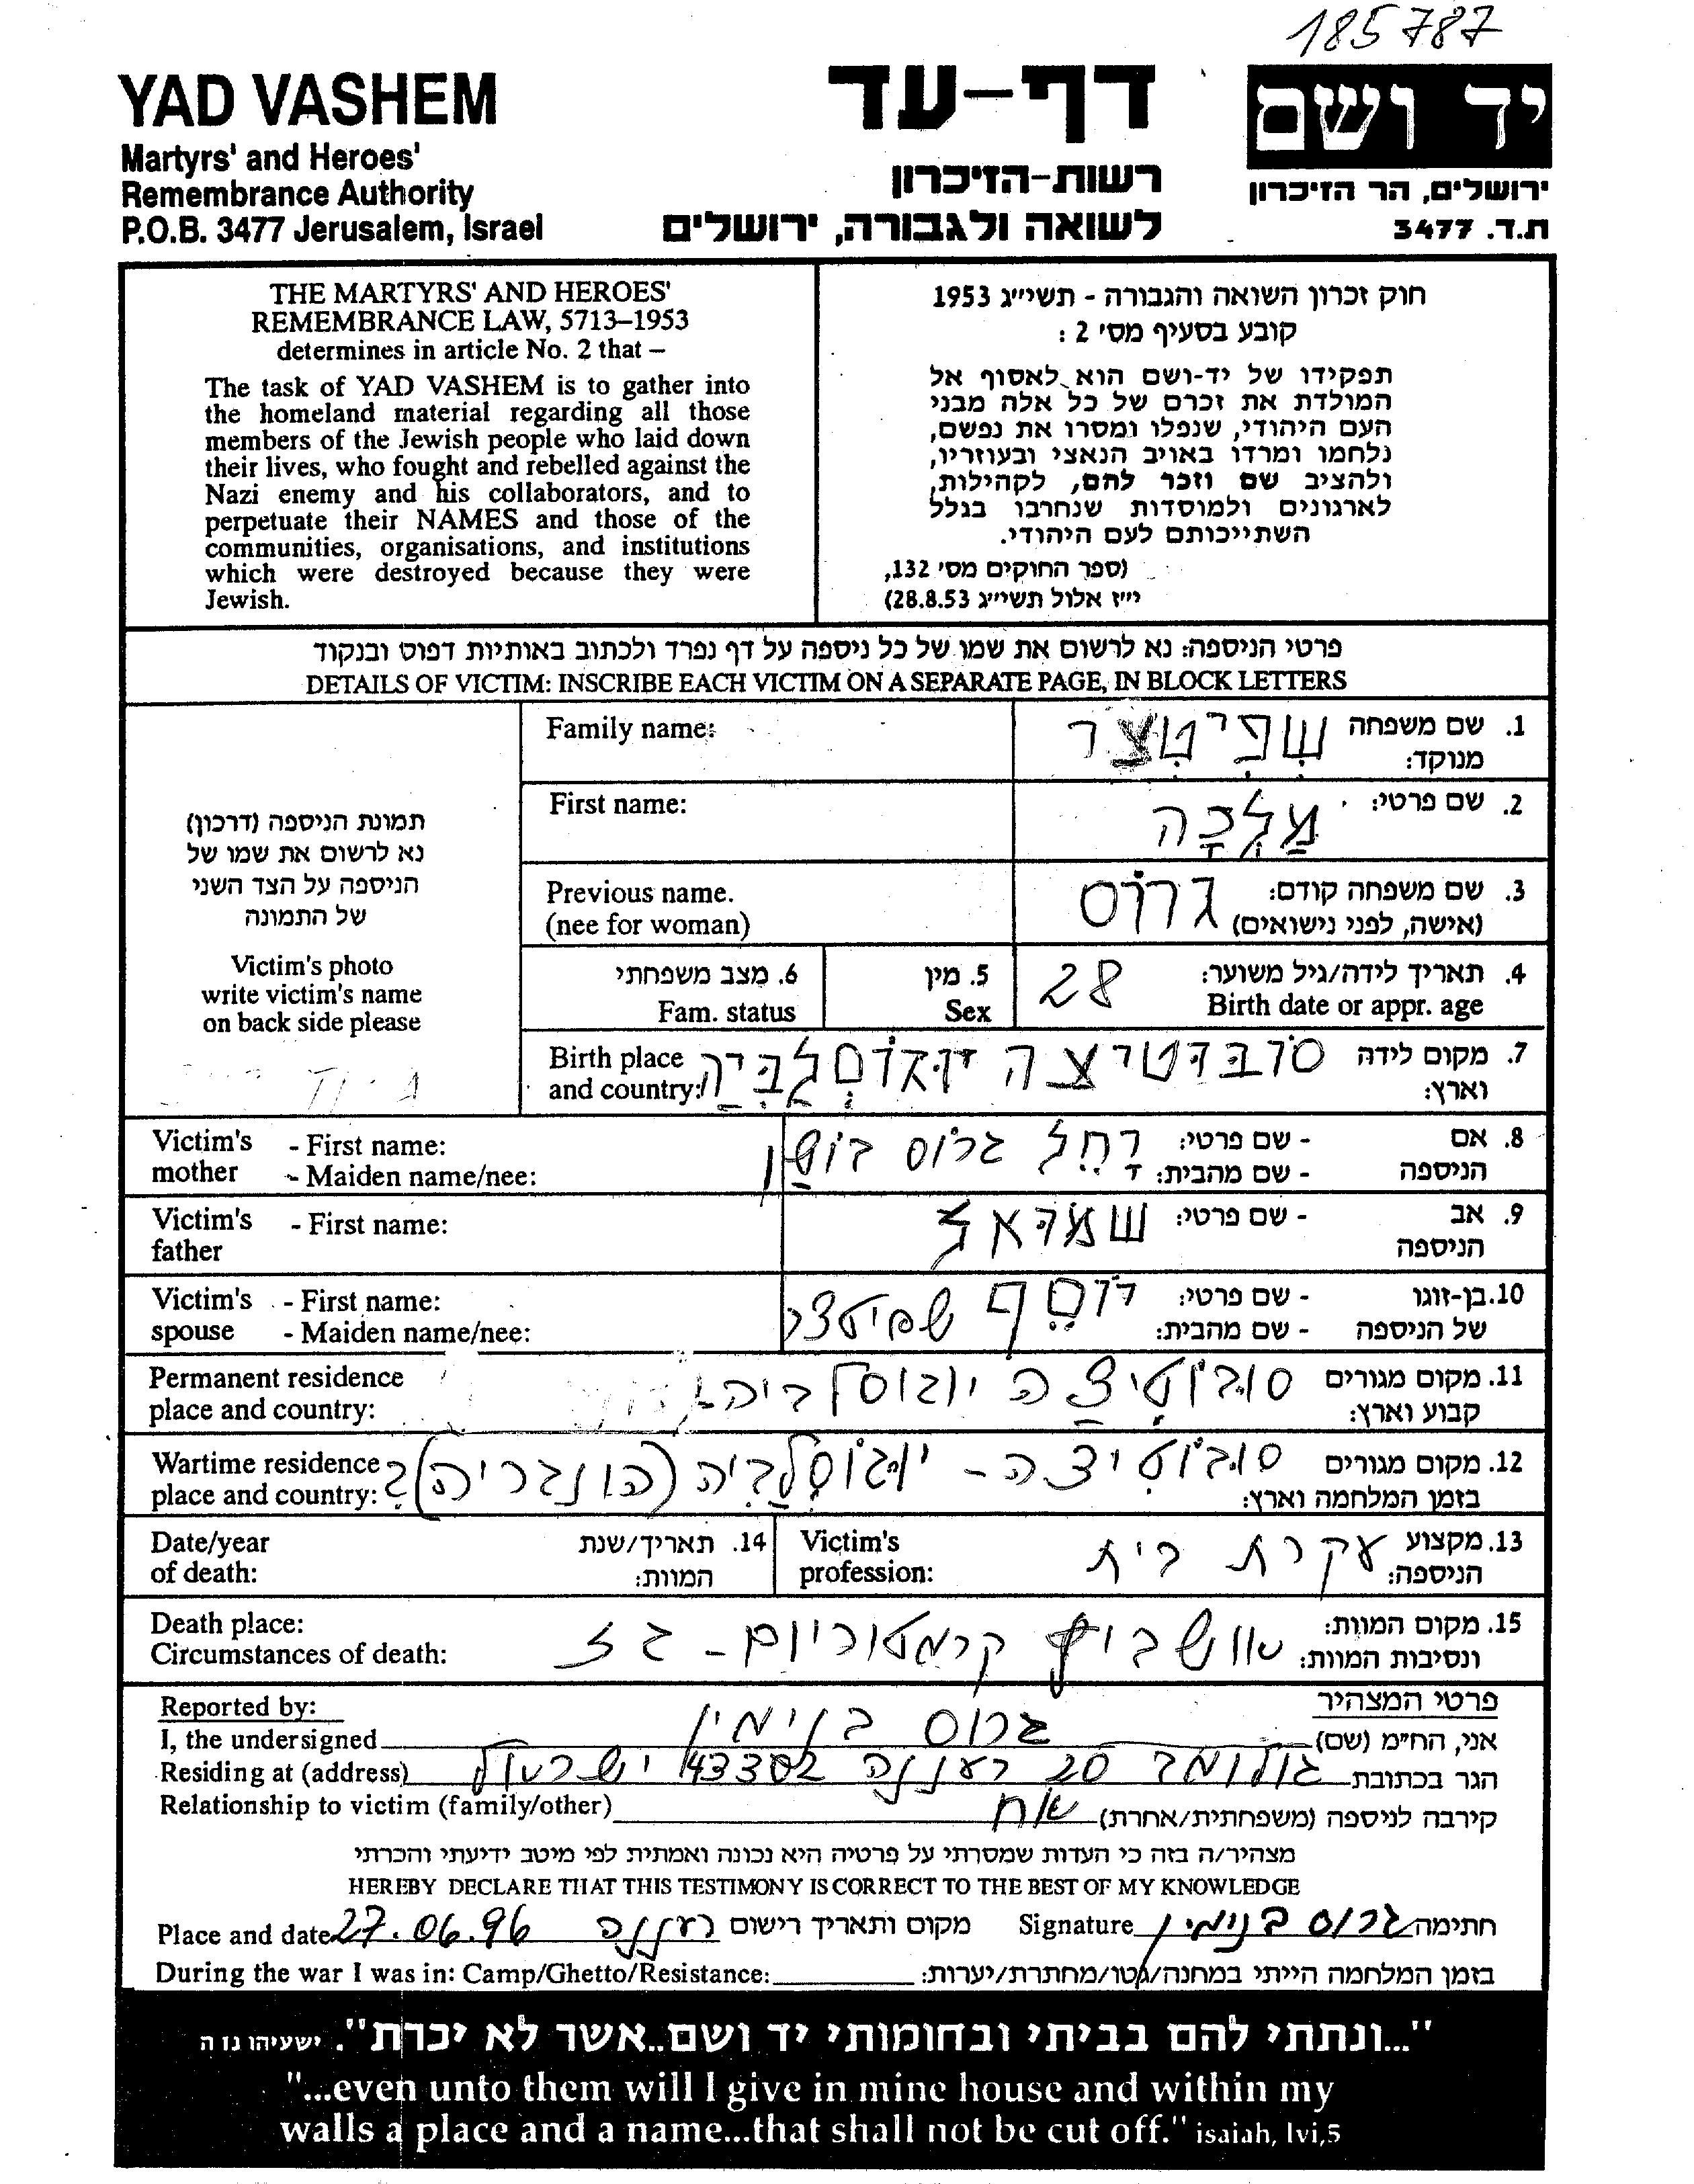 185787
YAD VASHEM
Martyrs' and Heroes'
Remembrance Authority
P.O.B. 3477 Jerusalem, Israel
דף-עד
רשות-הזיכרון
לשואה ולגבורה, ירושלים
יד ושם
ירושלים, הר הזיכרון
ת.ד. 3477
THE MARTYRS' AND HEROES'
REMEMBRANCE LAW, 5713–1953
determines in article No. 2 that –
The task of YAD VASHEM is to gather into
the homeland material regarding all those
members of the Jewish people who laid down
their lives, who fought and rebelled against the
Nazi enemy and his collaborators, and to
perpetuate their NAMES and those of the
communities, organisations, and institutions
which were destroyed because they were
Jewish.
חוק זכרון השואה והגבורה - תשי״ג 1953
קובע בסעיף מס׳ 2 :
תפקידו של יד-ושם הוא לאסוף אל
המולדת את זכרם של כל אלה מבני
העם היהודי, שנפלו ומסרו את נפשם,
נלחמו ומרדו באויב הנאצי ובעוזריו,
ולהציב שם וזכר להם, לקהילות,
לארגונים ולמוסדות שנחרבו בגלל
השתייכותם לעם היהודי.
(ספר החוקים מס׳ 132,
י״ז אלול תשי״ג 28.8.53)
פרטי הניספה: נא לרשום את שמו של כל ניספה על דף נפרד ולכתוב באותיות דפוס ובנקוד
DETAILS OF VICTIM: INSCRIBE EACH VICTIM ON A SEPARATE PAGE, IN BLOCK LETTERS
תמונת הניספה (דרכון)
נא לרשום את שמו של
הניספה על הצד השני
של התמונה
Victim's photo
write victim's name
on back side please
Family name:
1. שם משפחה שפיטצר
מנוקד:
First name:
2. שם פרטי: מַלְכָּה
Previous name.
(nee for woman)
3. שם משפחה קודם: גרוס
(אישה, לפני נישואים)
4. תאריך לידה/גיל משוער: 28
Birth date or appr. age
5. מין
Sex
6. מצב משפחתי
Fam. status
Birth place
and country:
7. מקום לידה סובוטיצה יוגוסלביה
וארץ:
Victim's mother
- First name:
- Maiden name/nee:
8. אם הניספה
- שם פרטי: רחל גרוס
- שם מהבית:
Victim's father
- First name:
9. אב הניספה
- שם פרטי: שמואל
Victim's spouse
- First name:
- Maiden name/nee:
10. בן-זוגו של הניספה
- שם פרטי: יוסף שפיטצר
- שם מהבית:
Permanent residence
place and country:
11. מקום מגורים סובוטיצה יוגוסלביה
קבוע וארץ:
Wartime residence
place and country:
12. מקום מגורים סובוטיצה - יוגוסלביה (הונגריה)
בזמן המלחמה וארץ:
Date/year
of death:
14. תאריך/שנת
המוות:
Victim's
profession:
13. מקצוע עקרת בית
הניספה:
Death place:
Circumstances of death:
15. מקום המוות: אושביץ קרמטוריום - גז
ונסיבות המוות:
Reported by:
פרטי המצהיר
I, the undersigned גרוס בנימין אני, הח״מ (שם)
Residing at (address) גולומב 20 רעננה 43302 ישראל הגר בכתובת
Relationship to victim (family/other) אח קירבה לניספה (משפחתית/אחרת)
מצהיר/ה בזה כי העדות שמסרתי על פרטיה היא נכונה ואמתית לפי מיטב ידיעתי והכרתי
HEREBY DECLARE THAT THIS TESTIMONY IS CORRECT TO THE BEST OF MY KNOWLEDGE
Place and date 27.06.96 רעננה מקום ותאריך רישום Signature גרוס בנימין חתימה
During the war I was in: Camp/Ghetto/Resistance: בזמן המלחמה הייתי במחנה/גטו/מחתרת/יערות:
"...ונתתי להם בביתי ובחומותי יד ושם..אשר לא יכרת". ישעיהו נו ה
"...even unto them will I give in mine house and within my
walls a place and a name...that shall not be cut off." isaiah, lvi,5